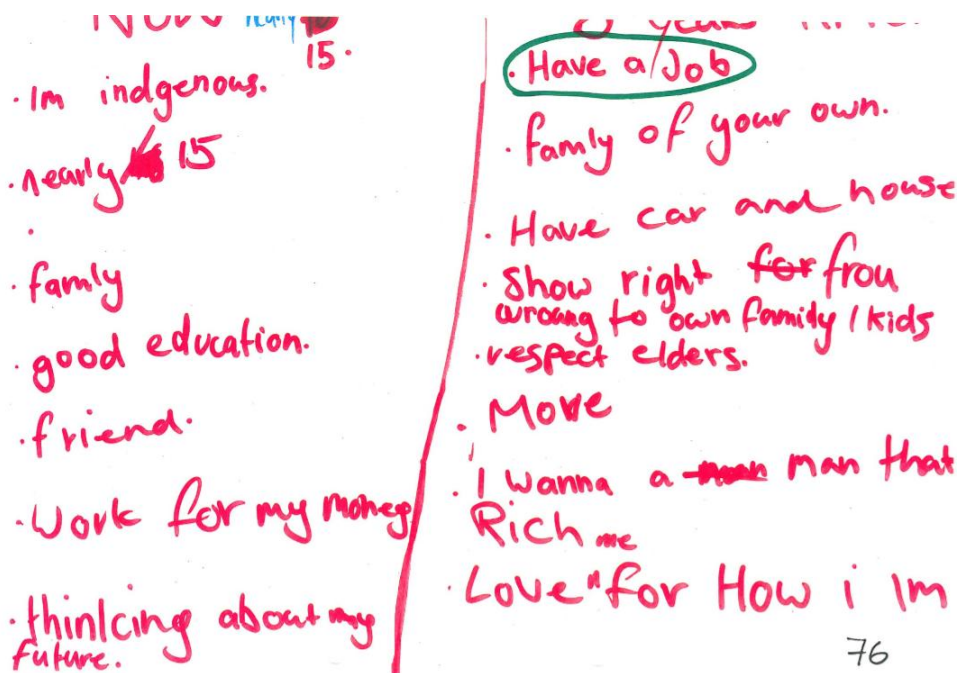 Now nearly
15.
. Im indgenous.
. nearly 15
.
. family
. good education.
. friend.
. Work for my money
. thinking about my
future.
years
. Have a / Job
. family of your own.
. Have car and house
. Show right for frou
wroang to own family / kids
. respect elders.
. Move
. I wanna a man that
Rich me
. Love " for How i Im
76